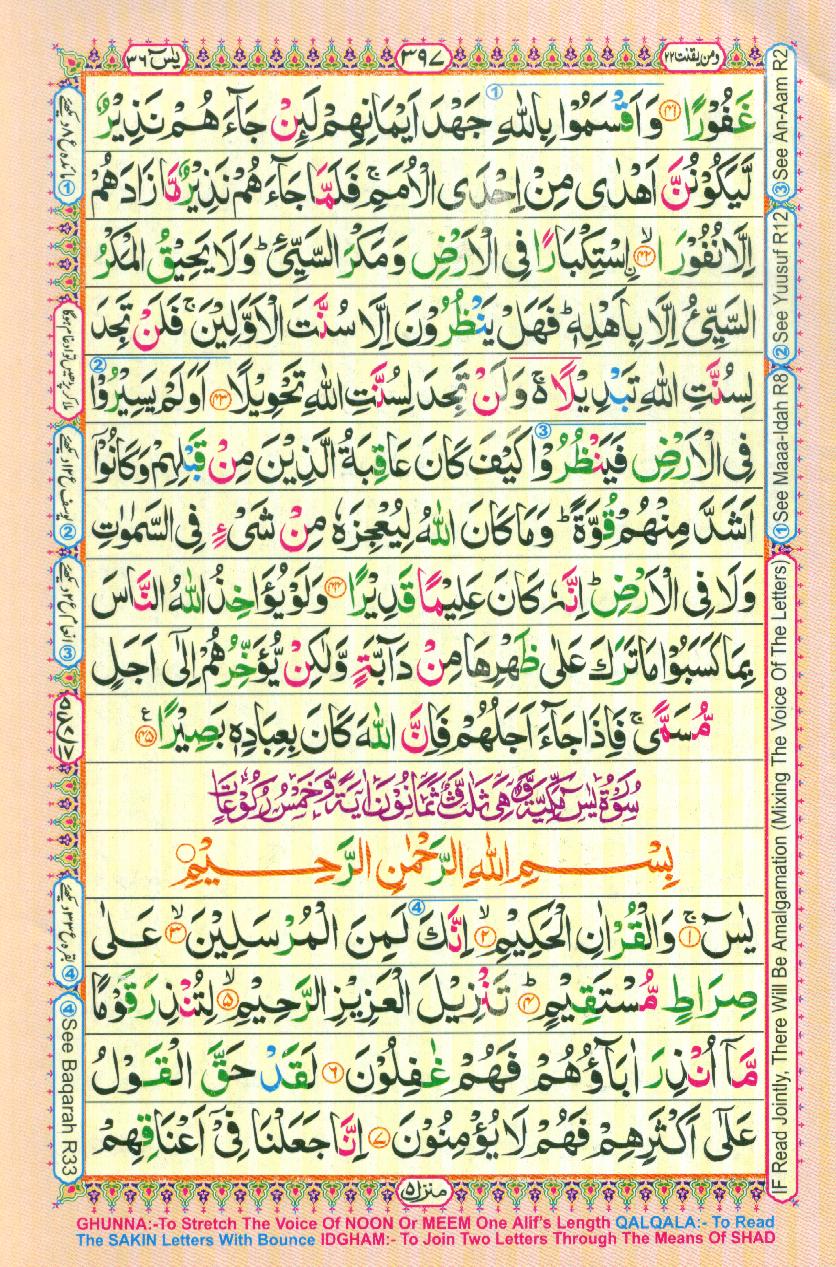 یٰسٓ ٣٦
٣٩٧
ومن یقنت ٢٢
غَفُوْرًا ﴿۴۱﴾ وَ اَقْسَمُوْا بِاللّٰهِ جَهْدَ اَیْمَانِهِمْ لَىِٕنْ جَآءَ هُمْ نَذِیْرٌ
لَّیَكُوْنُنَّ اَهْدٰی مِنْ اِحْدَی الْاُمَمِ ۚ فَلَمَّا جَآءَ هُمْ نَذِیْرٌ مَّا زَادَهُمْ
اِلَّا نُفُوْرَا ﴿۴۲﴾ ۙ اِسْتِكْبَارًا فِی الْاَرْضِ وَ مَكْرَ السَّیِّئِ ؕ وَ لَا یَحِیْقُ الْمَكْرُ
السَّیِّئُ اِلَّا بِاَهْلِهٖ ؕ فَهَلْ یَنْظُرُوْنَ اِلَّا سُنَّتَ الْاَوَّلِیْنَ ۚ فَلَنْ تَجِدَ
لِسُنَّتِ اللّٰهِ تَبْدِیْلًا ۚ۬ وَ لَنْ تَجِدَ لِسُنَّتِ اللّٰهِ تَحْوِیْلًا ﴿۴۳﴾ اَوَ لَمْ یَسِیْرُوْا
فِی الْاَرْضِ فَیَنْظُرُوْا كَیْفَ كَانَ عَاقِبَةُ الَّذِیْنَ مِنْ قَبْلِهِمْ وَ كَانُوْۤا
اَشَدَّ مِنْهُمْ قُوَّةً ؕ وَ مَا كَانَ اللّٰهُ لِیُعْجِزَهٗ مِنْ شَیْءٍ فِی السَّمٰوٰتِ
وَ لَا فِی الْاَرْضِ ؕ اِنَّهٗ كَانَ عَلِیْمًا قَدِیْرًا ﴿۴۴﴾ وَ لَوْ یُؤَاخِذُ اللّٰهُ النَّاسَ
بِمَا كَسَبُوْا مَا تَرَكَ عَلٰی ظَهْرِهَا مِنْ دَآبَّةٍ وَّ لٰكِنْ یُّؤَخِّرُهُمْ اِلٰۤی اَجَلٍ
مُّسَمًّی ۚ فَاِذَا جَآءَ اَجَلُهُمْ فَاِنَّ اللّٰهَ كَانَ بِعِبَادِهٖ بَصِیْرًا ﴿۴۵﴾ ع
سُوْرَةُ یٰسٓ مَكِّیَّةٌ وَّ هِیَ ثَلٰثٌ وَّ ثَمَانُوْنَ اٰیَةً وَّ خَمْسُ رُكُوْعَاتٍ
بِسْمِ اللّٰهِ الرَّحْمٰنِ الرَّحِیْمِ
یٰسٓ ﴿۱﴾ ۚ وَ الْقُرْاٰنِ الْحَكِیْمِ ﴿۲﴾ ۙ اِنَّكَ لَمِنَ الْمُرْسَلِیْنَ ﴿۳﴾ ۙ عَلٰی
صِرَاطٍ مُّسْتَقِیْمٍ ﴿۴﴾ ؕ تَنْزِیْلَ الْعَزِیْزِ الرَّحِیْمِ ﴿۵﴾ ۙ لِتُنْذِرَ قَوْمًا
مَّاۤ اُنْذِرَ اٰبَآؤُهُمْ فَهُمْ غٰفِلُوْنَ ﴿۶﴾ لَقَدْ حَقَّ الْقَوْلُ
عَلٰۤی اَكْثَرِهِمْ فَهُمْ لَا یُؤْمِنُوْنَ ﴿۷﴾ اِنَّا جَعَلْنَا فِیْۤ اَعْنَاقِهِمْ
منزل ۵
③ See An-Aam R2
② See Yuusuf R12
① See Maaa-Idah R8
IF Read Jointly, There Will Be Amalgamation (Mixing The Voice Of The Letters)
④ See Baqarah R33
GHUNNA:-To Stretch The Voice Of NOON Or MEEM One Alif's Length QALQALA:- To Read
The SAKIN Letters With Bounce IDGHAM:- To Join Two Letters Through The Means Of SHAD